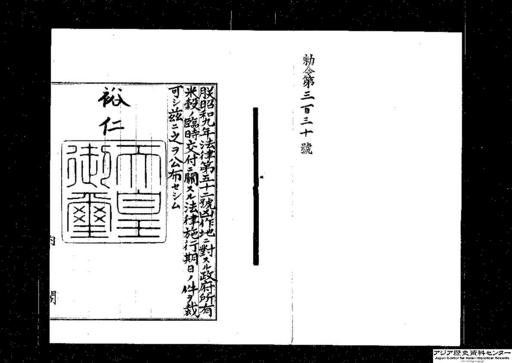 勅令第三百三十號
朕昭和九年法律第五十二號凶作地ニ對スル政府所有
米穀ノ臨時交付ニ關スル法律施行期日ノ件ヲ裁
可シ茲ニ之ヲ公布セシム
裕仁
天皇御璽
内閣
アジア歴史資料センター
Japan Center for Asian Historical Records